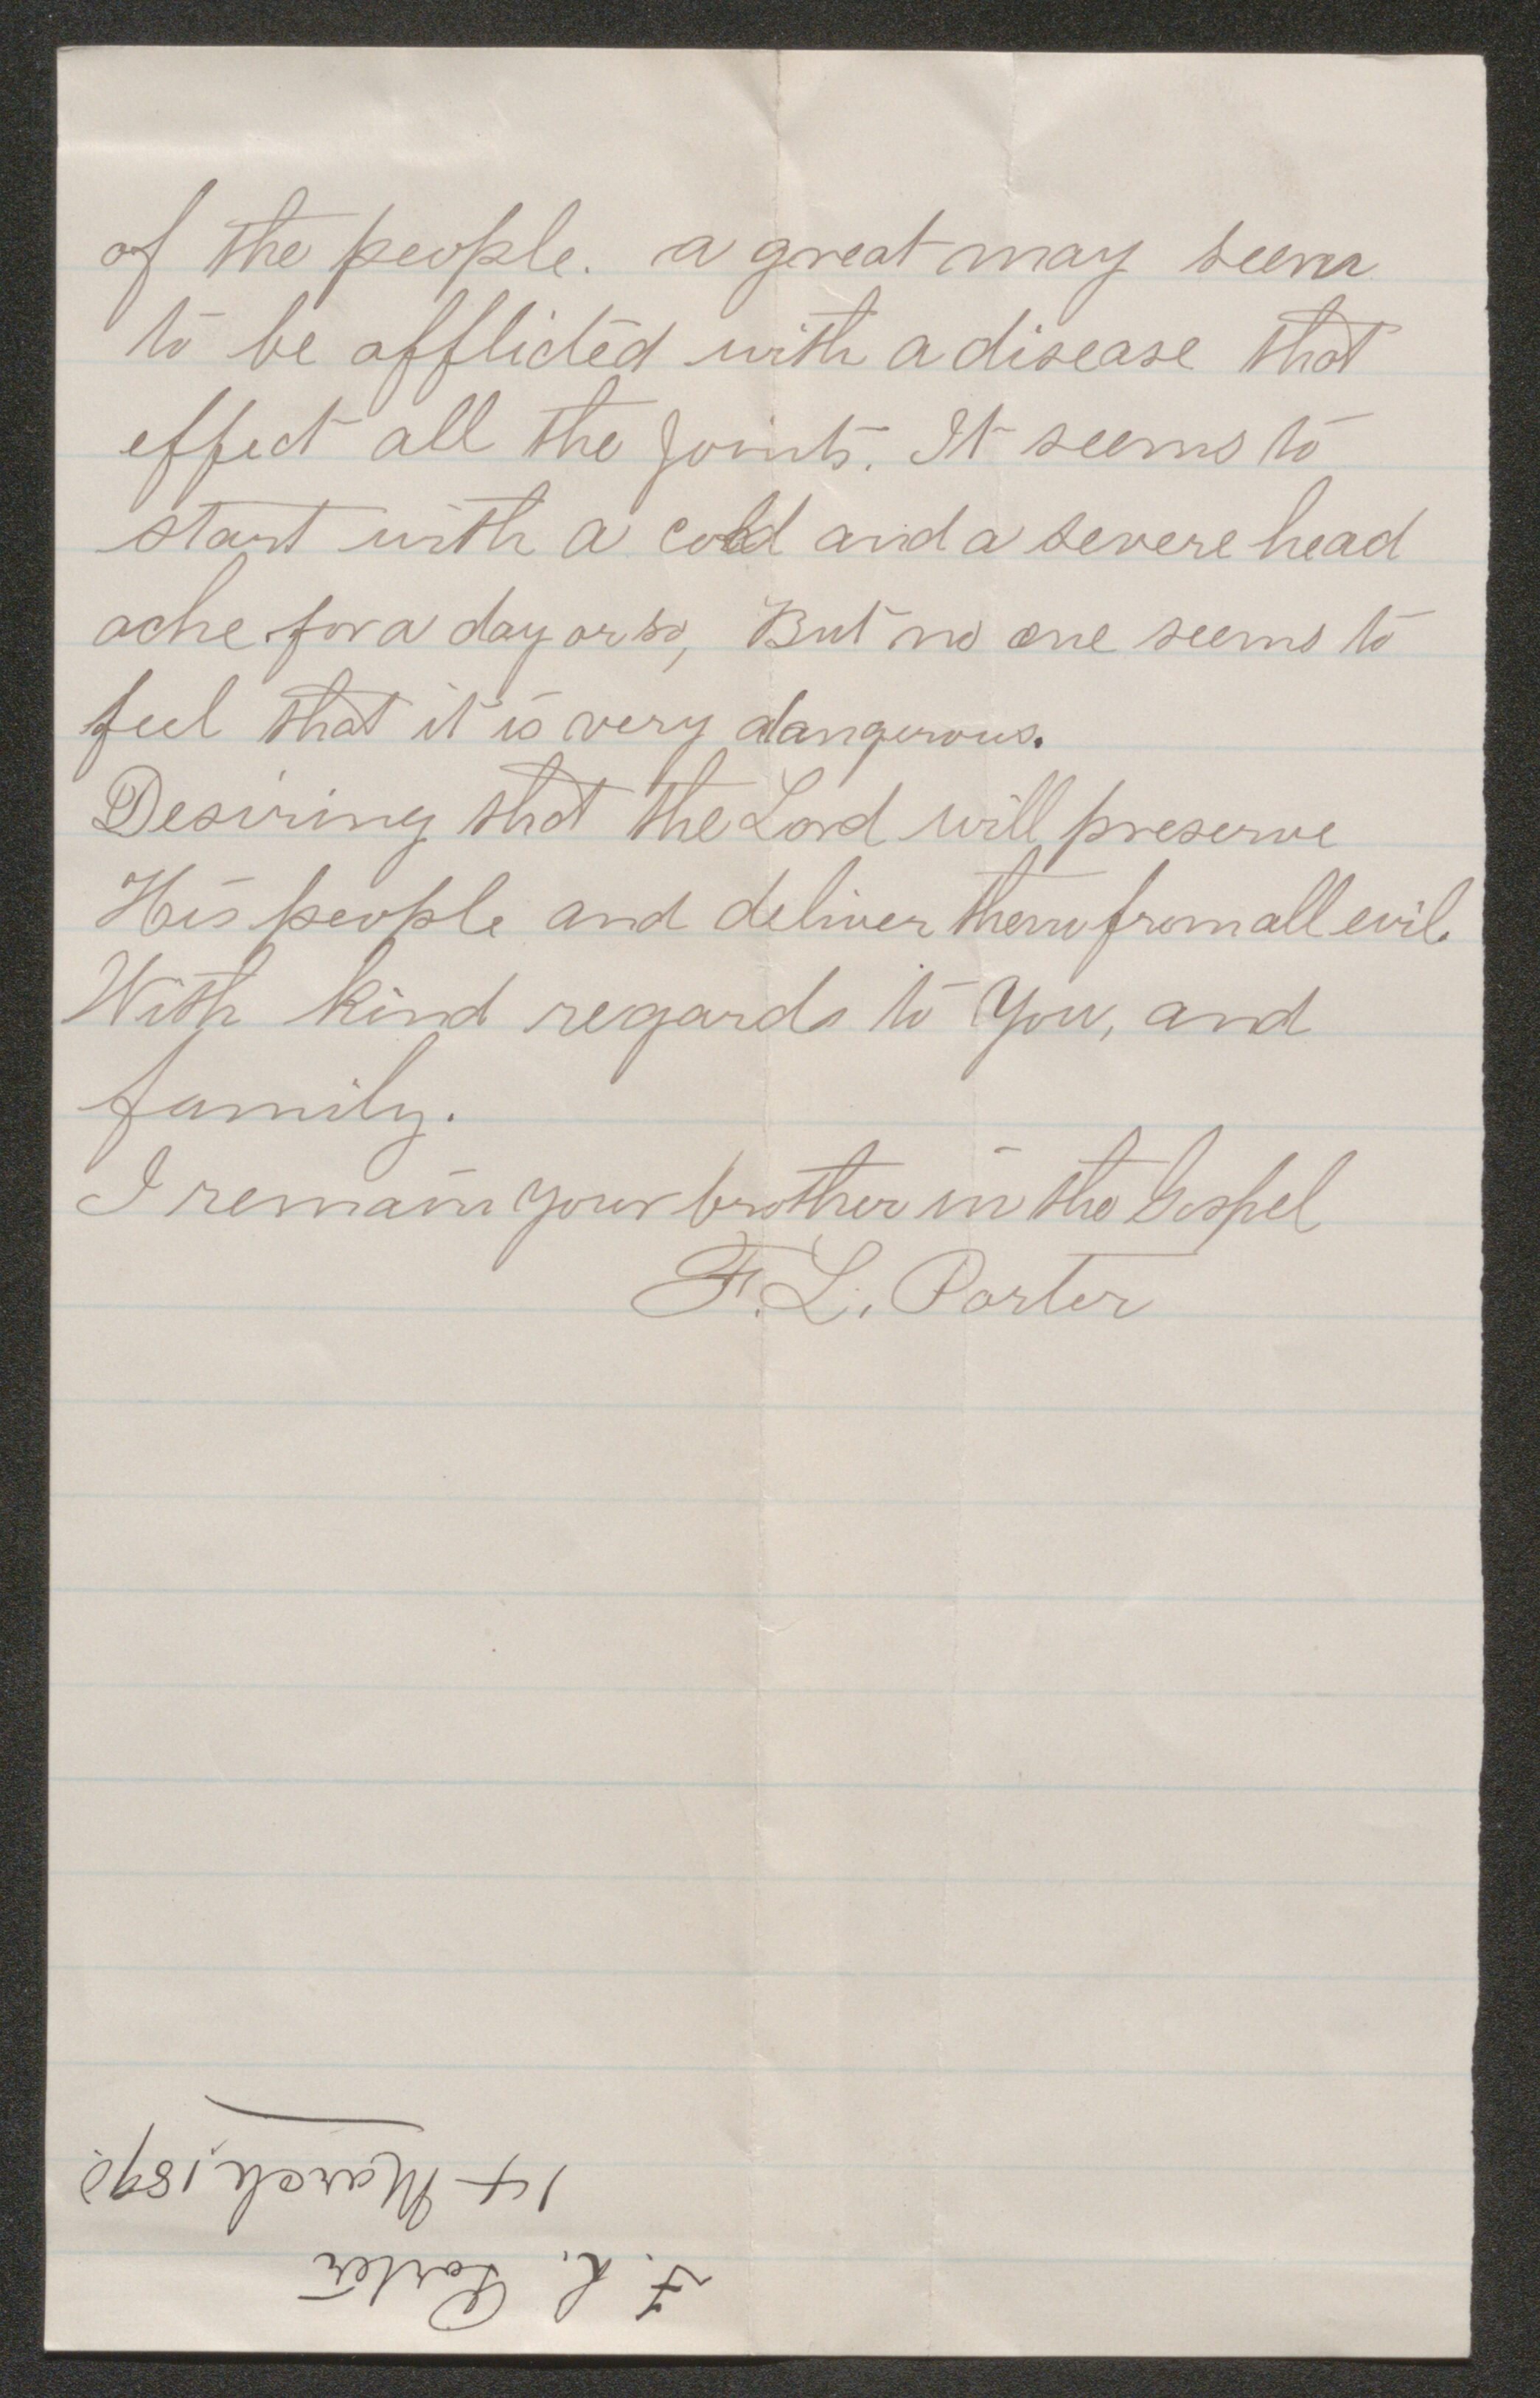 of the people. a great may seem
to be afflicted with a disease that
effect all the joints. It seems to
start with a cold and a severe head
ache for a day or so, But no one seems to
feel that it is very dangerous.
Desiring that the Lord will preserve
His people and deliver them from all evil.
With kind regards to You, and
family.
I remain your brother in the Gospel
F. L. Porter
F. L. Porter
14 March, 1890.